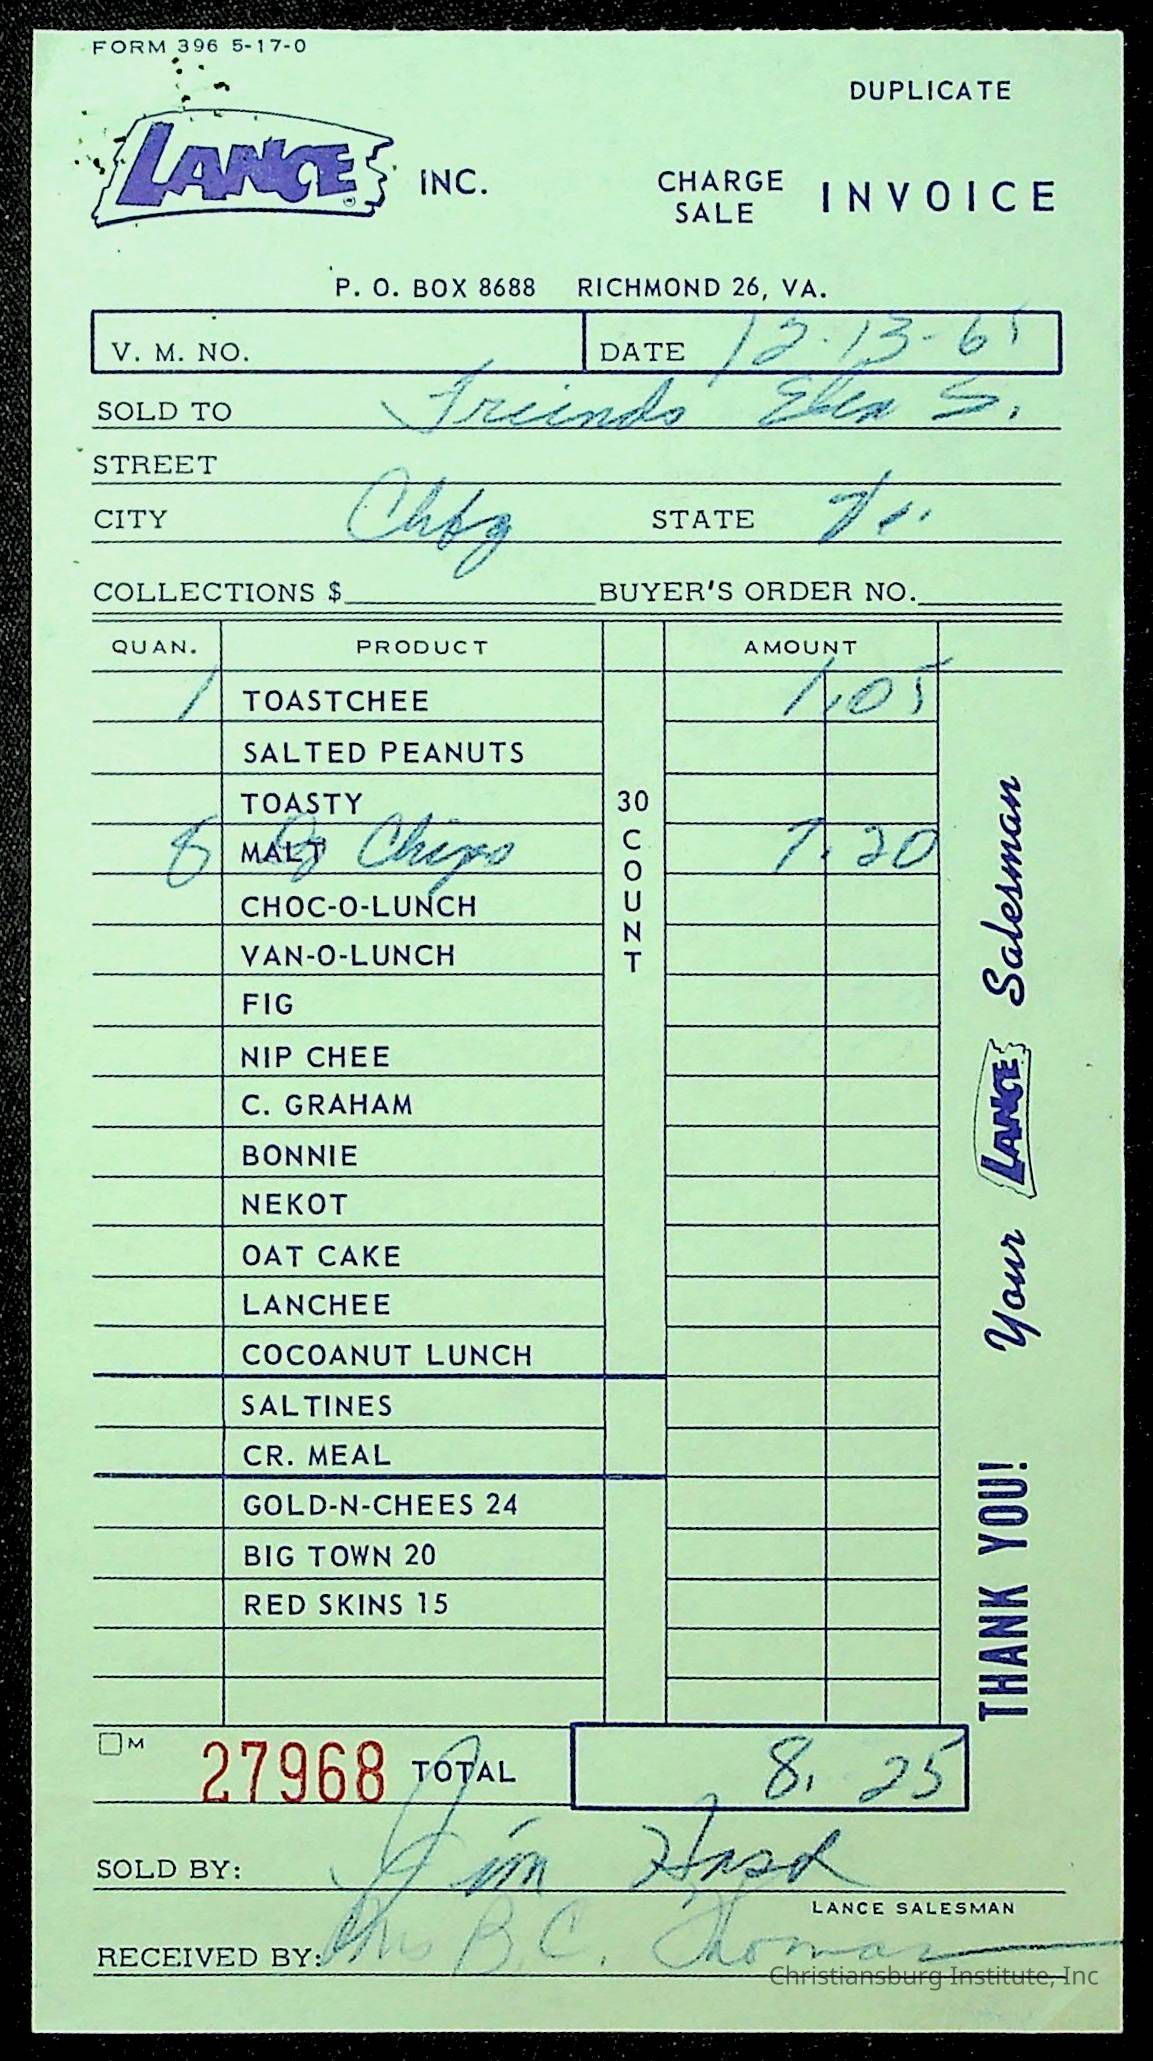 FORM 396 5-17-0
DUPLICATE
LANCE INC. CHARGE SALE INVOICE
P. O. BOX 8688 RICHMOND 26, VA.
V. M. NO. DATE 12-13-65
SOLD TO Freinds Elem S.
STREET
CITY Chbg STATE
COLLECTIONS $ BUYER'S ORDER NO.
QUAN. PRODUCT AMOUNT
1 TOASTCHEE 1.05
SALTED PEANUTS
TOASTY
8 MALT Chips 7.20
CHOC-O-LUNCH
VAN-O-LUNCH
FIG
NIP CHEE
C. GRAHAM
BONNIE
NEKOT
OAT CAKE
LANCHEE
COCOANUT LUNCH
SALTINES
CR. MEAL
GOLD-N-CHEES 24
BIG TOWN 20
RED SKINS 15
30 COUNT
THANK YOU! Your LANCE Salesman
M 27968 TOTAL 8.25
SOLD BY: Jim
LANCE SALESMAN
RECEIVED BY: Mrs B.C. Thomas
Christiansburg Institute, Inc